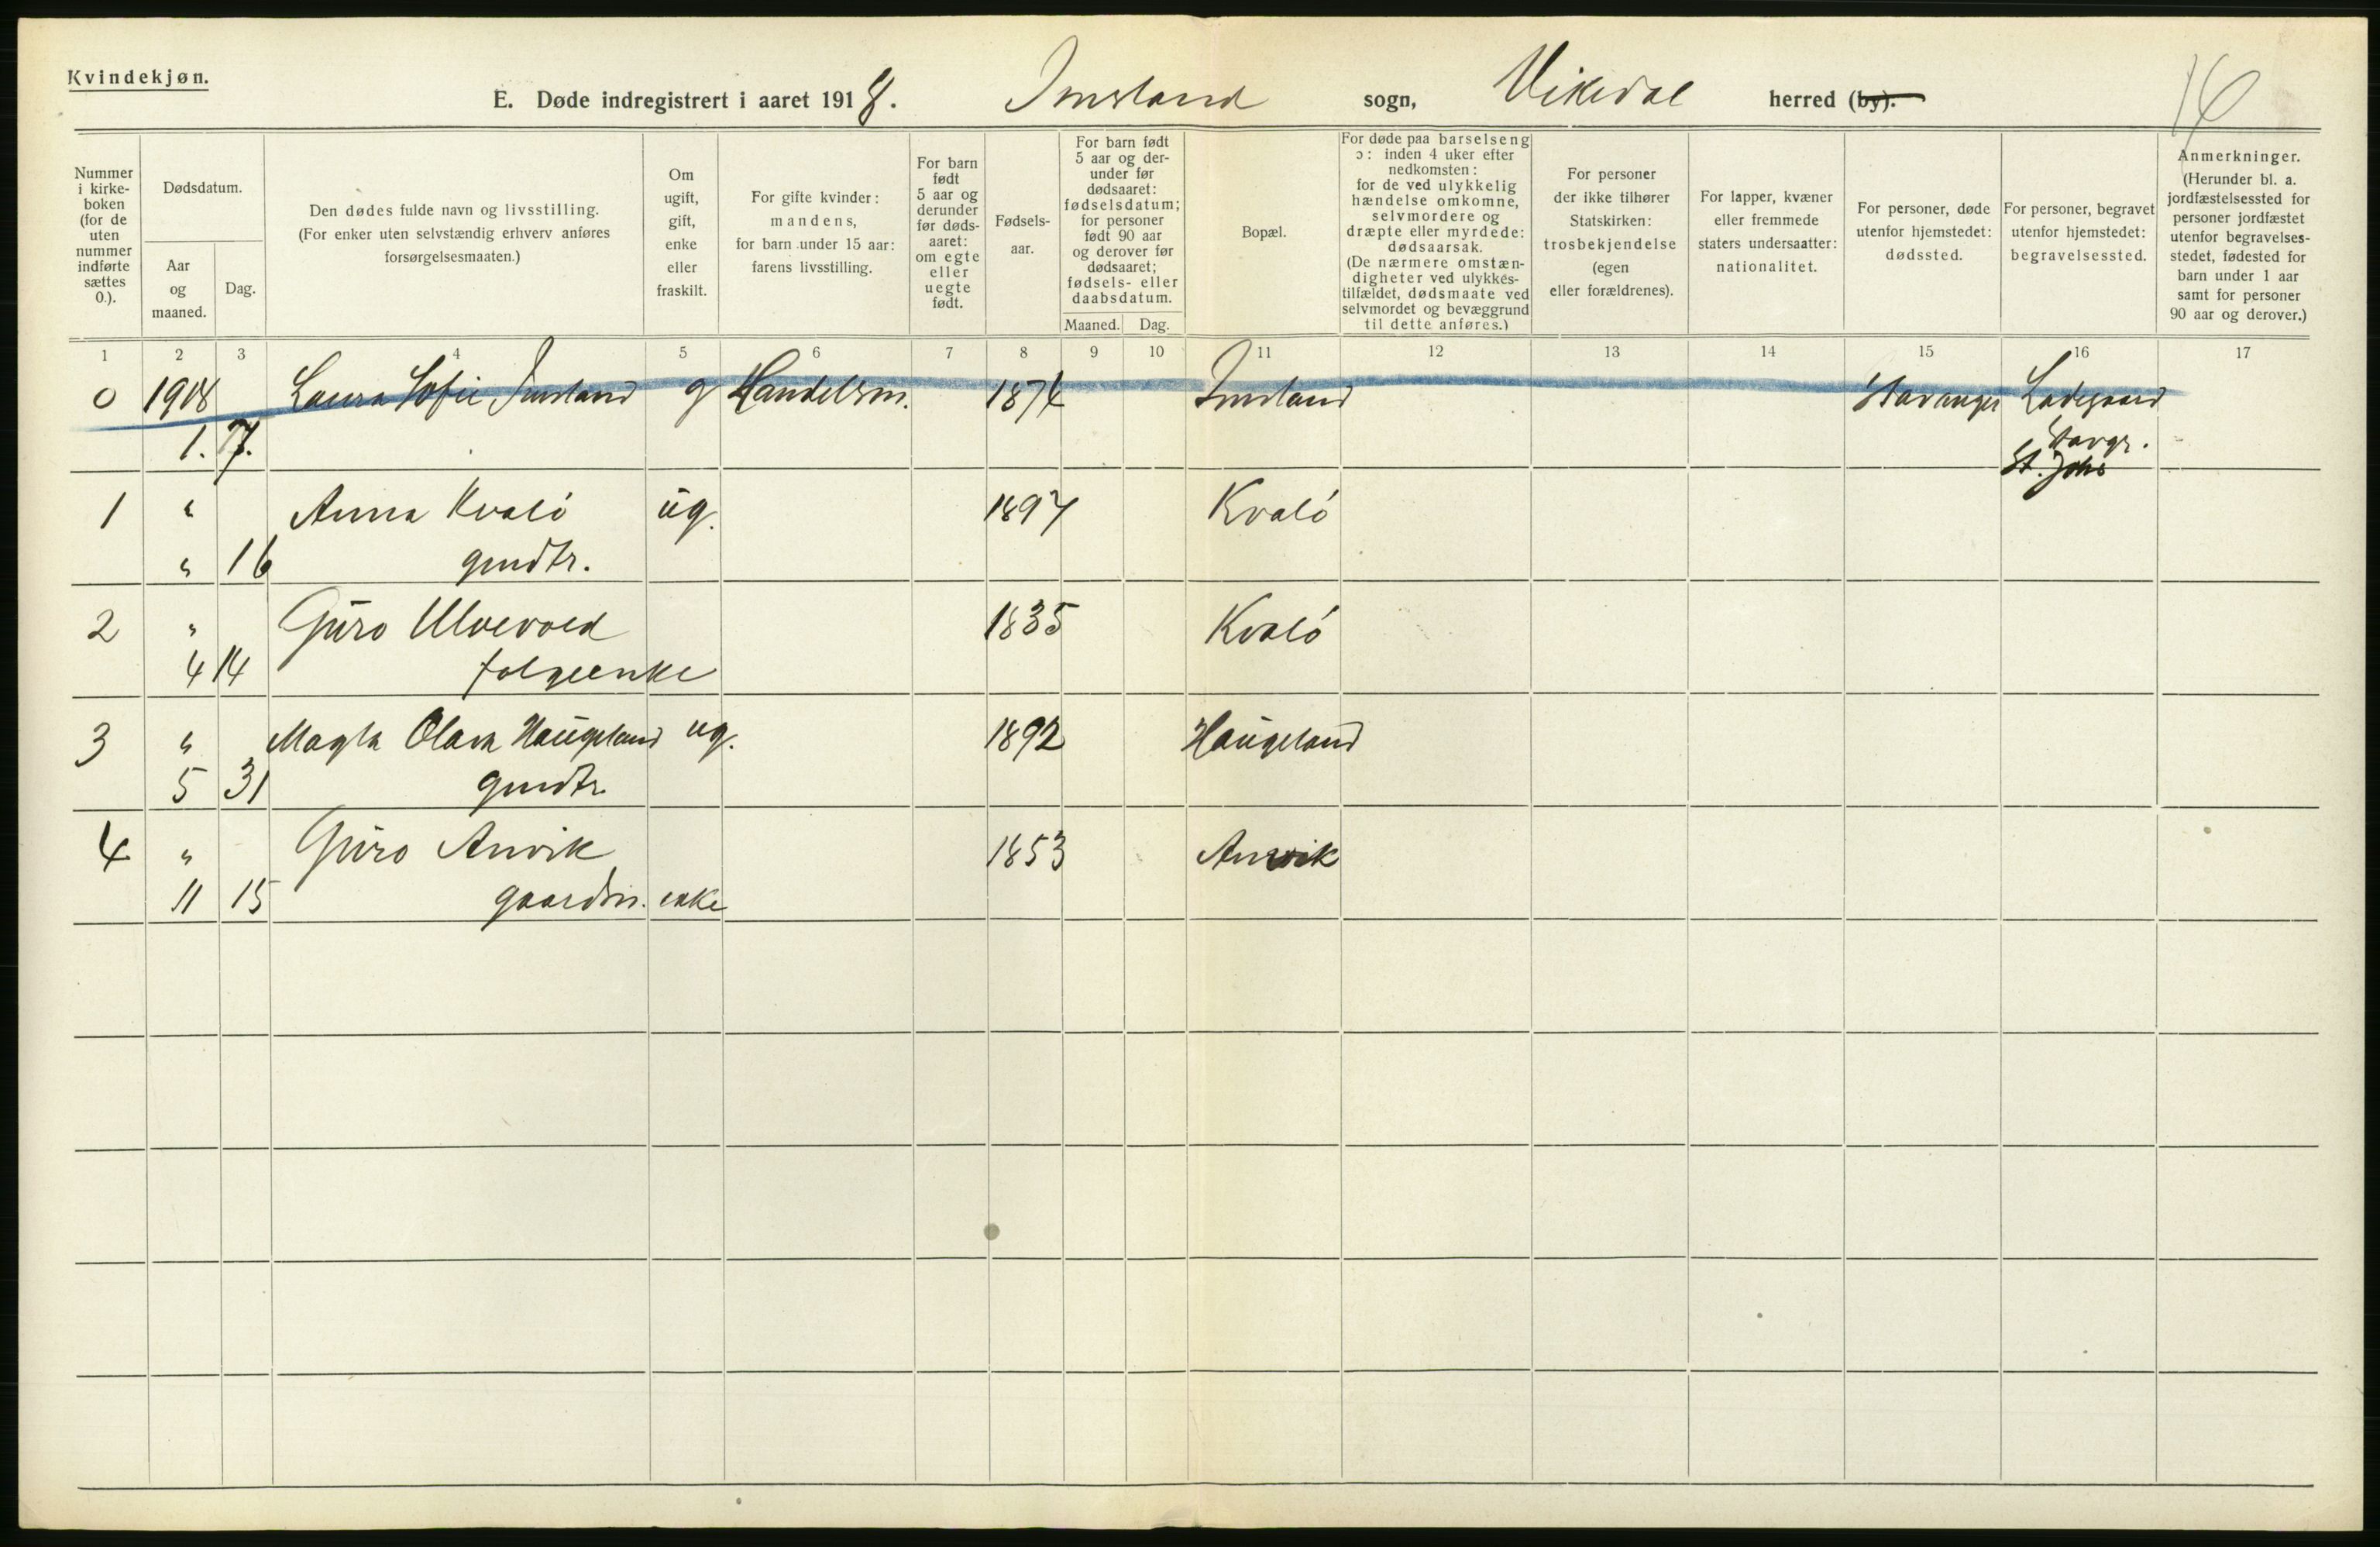 Kvindekjøn.
E. Døde indregistrert i aaret 1918. Imsland sogn, Vikedal herred (by).
16
Nummer i kirkeboken (for de uten nummer indførte sættes 0.).
Dødsdatum.
Aar og maaned.
Dag.
Den dødes fulde navn og livsstilling.
(For enker uten selvstændig erhverv anføres forsørgelsesmaaten.)
Om ugift, gift, enke eller fraskilt.
For gifte kvinder: mandens, for barn under 15 aar: farens livsstilling.
For barn født 5 aar og derunder før dødsaaret: om egte eller uegte født.
Fødselsaar.
For barn født 5 aar og derunder før dødsaaret: fødselsdatum; for personer født 90 aar og derover før dødsaaret; fødsels- eller daabsdatum.
Maaned. Dag.
Bopæl.
For døde paa barselseng ɔ: inden 4 uker efter nedkomsten: for de ved ulykkelig hændelse omkomne, selvmordere og dræpte eller myrdede: dødsaarsak.
(De nærmere omstændigheter ved ulykkestilfældet, dødsmaate ved selvmordet og bevæggrund til dette anføres.)
For personer der ikke tilhører Statskirken: trosbekjendelse (egen eller forældrenes).
For lapper, kvæner eller fremmede staters undersaatter: nationalitet.
For personer, døde utenfor hjemstedet: dødssted.
For personer, begravet utenfor hjemstedet: begravelsessted.
Anmerkninger.
(Herunder bl. a. jordfæstelsessted for personer jordfæstet utenfor begravelsesstedet, fødested for barn under 1 aar samt for personer 90 aar og derover.)
1 2 3 4 5 6 7 8 9 10 11 12 13 14 15 16 17
0 1918 Laura Sofie Imsland g Handelsm. 1874 Imsland Stavanger Ladegaard
1. 7. Stavgr.
St. Johs
1 " Anna Kvaló ug. 1897 Kvaló
" 16 gmdtr.
2 " Guro Ulvevold 1835 Kvaló
4 14 følgeenke
3 " Magla Olava Haugeland ug. 1892 Haugeland
5 31 gmdtr
4 " Guro Amvik 1853 Amvik
11 15 gaardm. enke